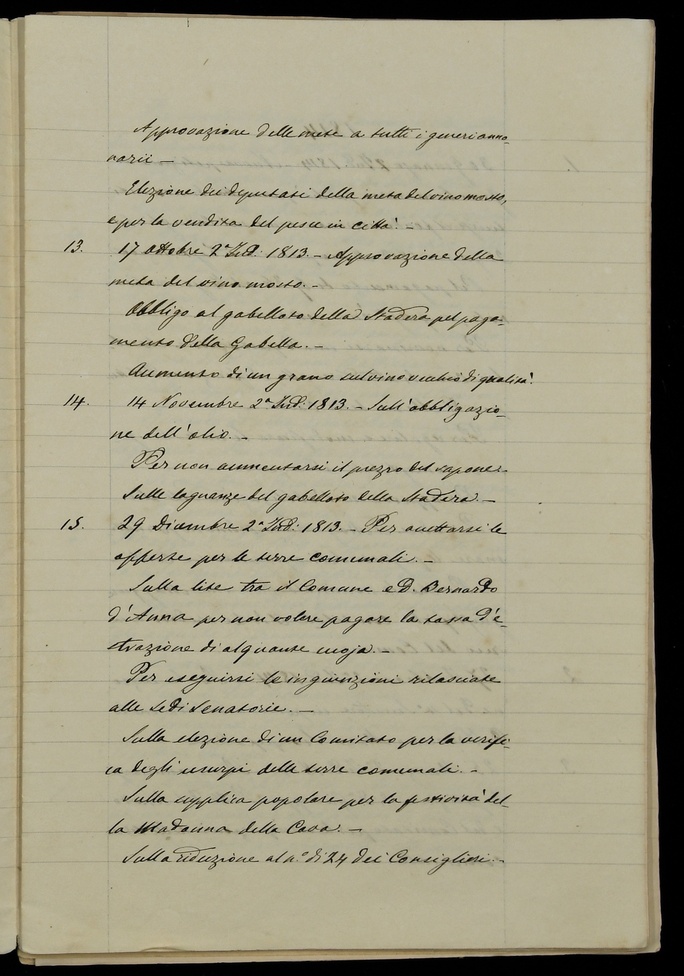 Approvazione delle mete a tutti i generi anno-
narii –
Elezione dei deputati della meta del vino mosto,
e per la vendita del pesce in città. –
13. 17 Ottobre 2ª Ind: 1813. – Approvazione della
meta del vino mosto. –
Obbligo al gabelloto della Stadera pel paga-
mento della Gabella. –
Aumento di un grano sul vino vecchio di qualità.
14. 14 Novembre 2ª Ind: 1813. – Sull'obbligazio-
ne dell'olio. –
Per non aumentarsi il prezzo del sapone –
Sulle lagnanze del gabelloto della Stadera. –
15. 29 Dicembre 2ª Ind: 1813. – Per accettarsi le
offerte per le terre comunali. –
Sulla lite tra il Comune e D. Bernardo
d'Anna per non volere pagare la tassa d'e-
strazione di alquante cuoja. –
Per eseguirsi le ingiunzioni rilasciate
alle Sedi Senatorie. –
Sulla elezione di un Comitato per la verifi-
ca degli usurpi delle terre comunali. –
Sulla supplica popolare per la festività del-
la Madonna della Cava. –
Sulla riduzione al n.º di 24 dei Consiglieri. –